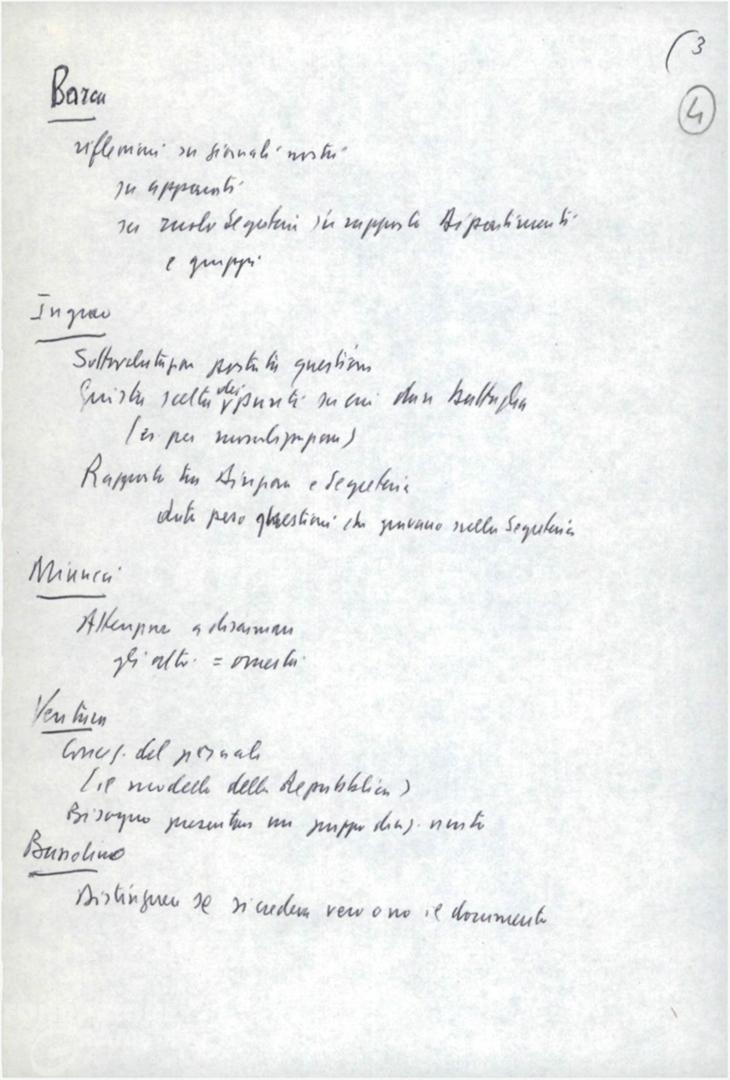 3
4
Barca
riflessioni su giornali nostri
su apparati
su ruolo Segreteria in rapporto Dipartimenti
e gruppi
Ingrao
Sottovalutazione portata questione
Giusta scelta dei punti su cui dare battaglia
(es per
Rapporto tra Direzione e Segreteria
date però questioni che gravano sulla Segreteria
Minucci
Attenzione a disarmare
gli altri = onestà
Ventura
Concez. del giornale
(il modello della Repubblica)
Bisogno presentare un gruppo dirig. unito
Bassolino
Distinguere se si credeva vero o no il documento